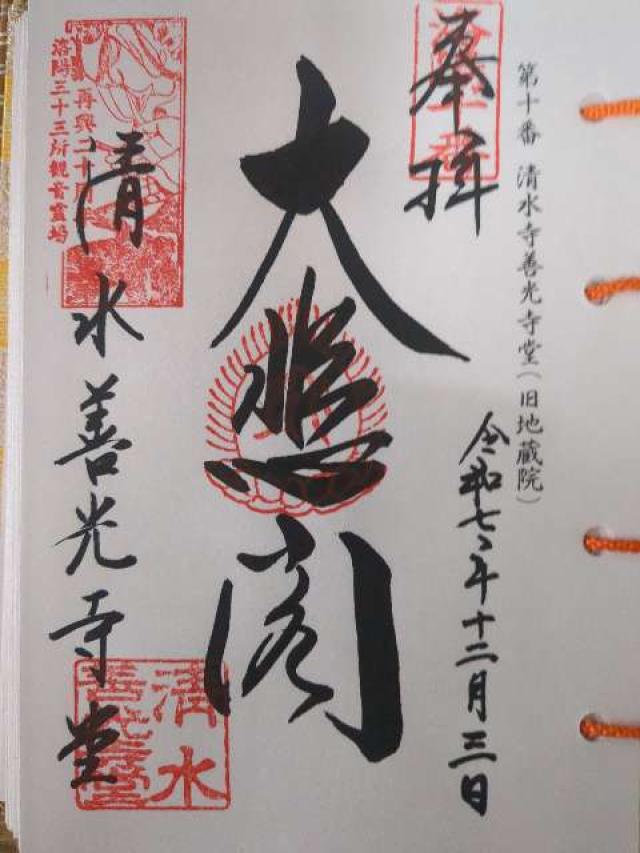 第十番 清水寺善光寺堂（旧地蔵院）
奉拝
令和七年十二月三日
大悲閣
清水善光寺堂
再興二十周年
洛陽三十三所観音霊場
清水
善光寺堂